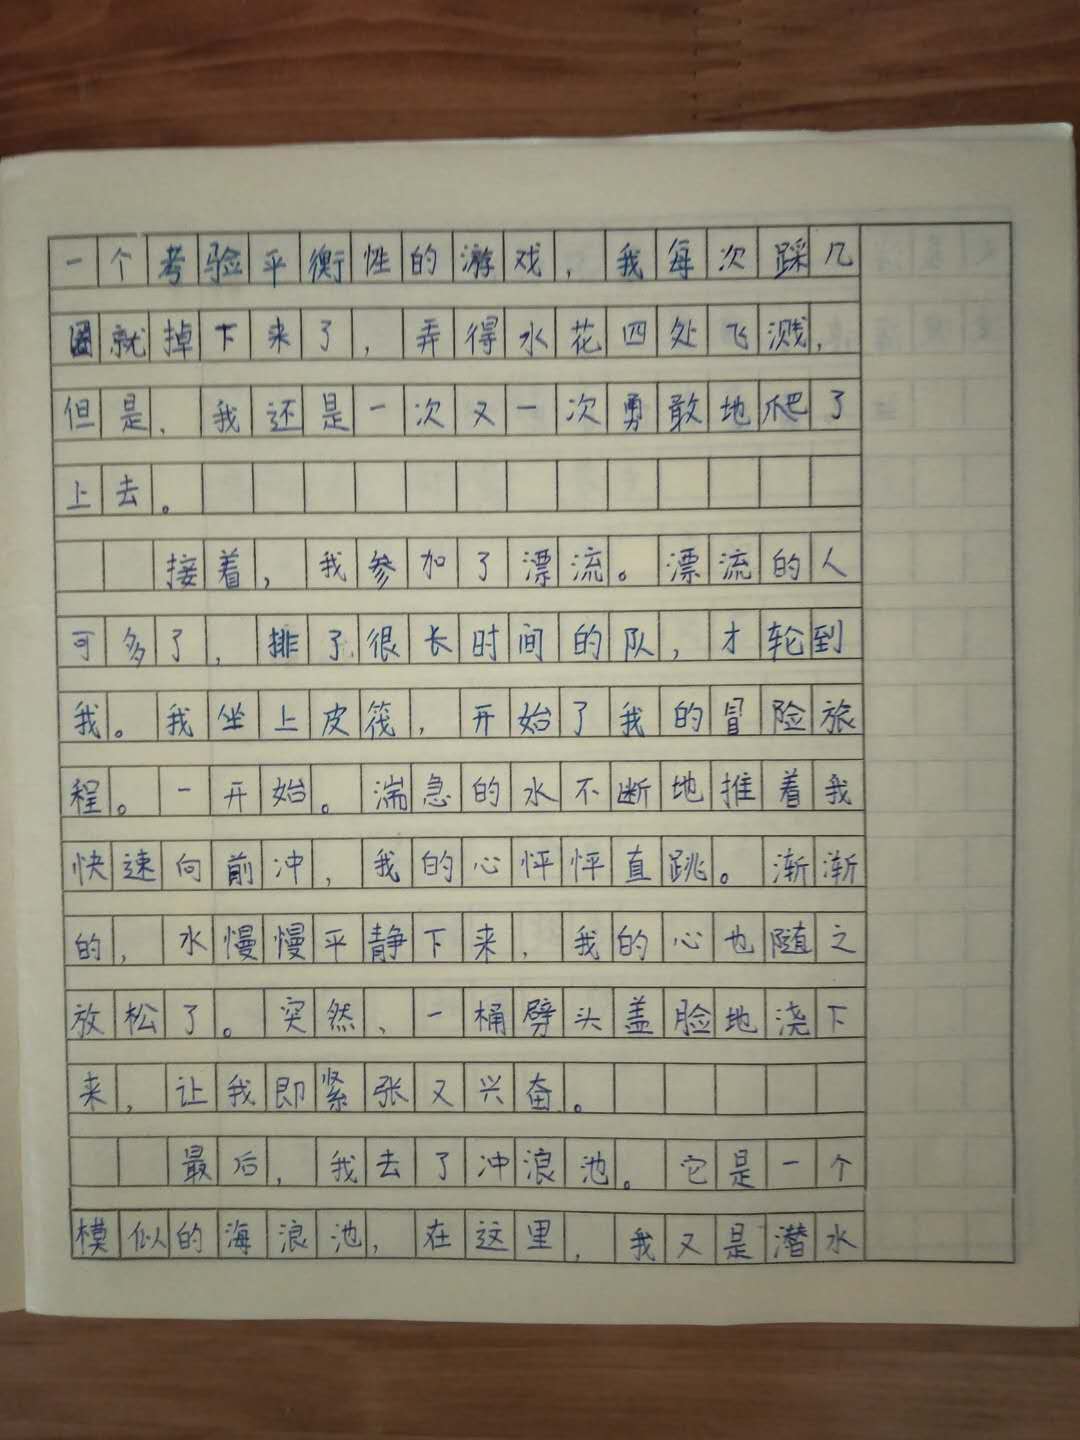 一个考验平衡性的游戏，我每次踩几
圈就掉下来了，弄得水花四处飞溅，
但是、我还是一次又一次勇敢地爬了
上去。
接着，我参加了漂流。漂流的人
可多了，排了很长时间的队，才轮到
我。我坐上皮筏，开始了我的冒险旅
程。一开始。湍急的水不断地推着我
快速向前冲，我的心怦怦直跳。渐渐
的，水慢慢平静下来，我的心也随之
放松了。突然、一桶劈头盖脸地浇下
来，让我即紧张又兴奋。
最后，我去了冲浪池。它是一个
模似的海浪池，在这里，我又是潜水